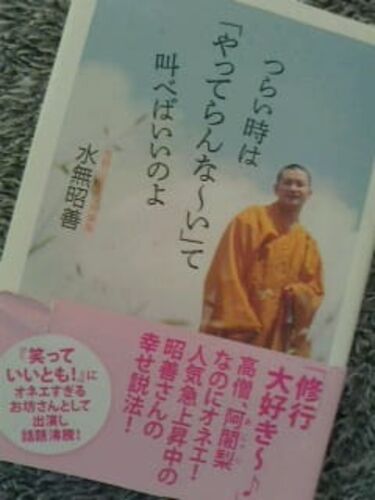 つらい時は
「やってらんな〜い」て
叫べばいいのよ
水無昭善
「修行
大好き〜♪
高僧・阿闍梨
なのにオネエ！
人気急上昇中の
昭善さんの
幸せ説法！
『笑って
いいとも！』に
オネエすぎる
お坊さんとして
出演し
話題沸騰！